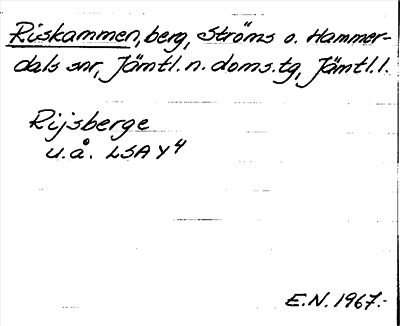 Riskammen, berg, Ströms o. Hammer-
dals snr, Jämtl. n. doms.tg, Jämtl. l.
Rijsberge
u.å. LSA Y4
E.N. 1967.-